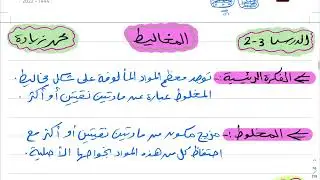 2022 - 1444
الدرس 3-2
المخاليط
محمد زيادة
الفكرة الرئيسية :- توجد معظم المواد المألوفة على شكل مخاليط.
المخلوط عبارة عن مادتين نقيتين أو أكثر .
المخلوط :- مزيج مكون من مادتين نقيتين أو أكثر مع
احتفاظ كل من هذه المواد بخواصها الأصلية.